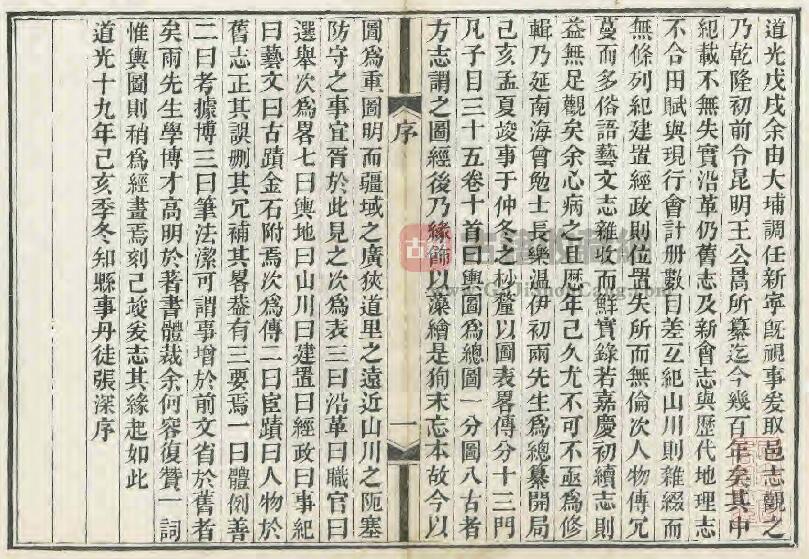 道光戊戌余由大埔調任新寧旣視事爰取邑志觀之
乃乾隆初前令昆明王公暠所纂迄今幾百年矣其中
紀載不無失實沿革仍舊志及新會志與歷代地理志
不合田賦與現行會計册數目差互紀山川則雜綴而
無條列紀建置經政則位置失所而無倫次人物傳冗
蔓而多俗語藝文志雜收而鮮實錄若嘉慶初續志則
益無足觀矣余心病之且歷年已久尤不可不亟爲修
輯乃延南海曾勉士長樂温伊初兩先生爲總纂開局
己亥孟夏竣事于仲冬之杪釐以圖表畧傳分十三門
凡子目三十五卷十首曰輿圖爲總圖一分圖八古者
方志謂之圖經後乃緣飾以藻繪是狥末忘本故今以
序
一
圖爲重圖明而疆域之廣狹道里之遠近山川之阨塞
防守之事宜胥於此見之次爲表三曰沿革曰職官曰
選舉次爲畧七曰輿地曰山川曰建置曰經政曰事紀
曰藝文曰古蹟金石附焉次爲傳二曰宦蹟曰人物於
舊志正其誤删其冗補其畧葢有三要焉一曰體例善
二曰考據博三曰筆法潔可謂事增於前文省於舊者
矣兩先生學博才高明於著書體裁余何容復贊一詞
惟輿圖則稍爲經畫焉刻已竣爰志其緣起如此
道光十九年己亥季冬知縣事丹徒張深序